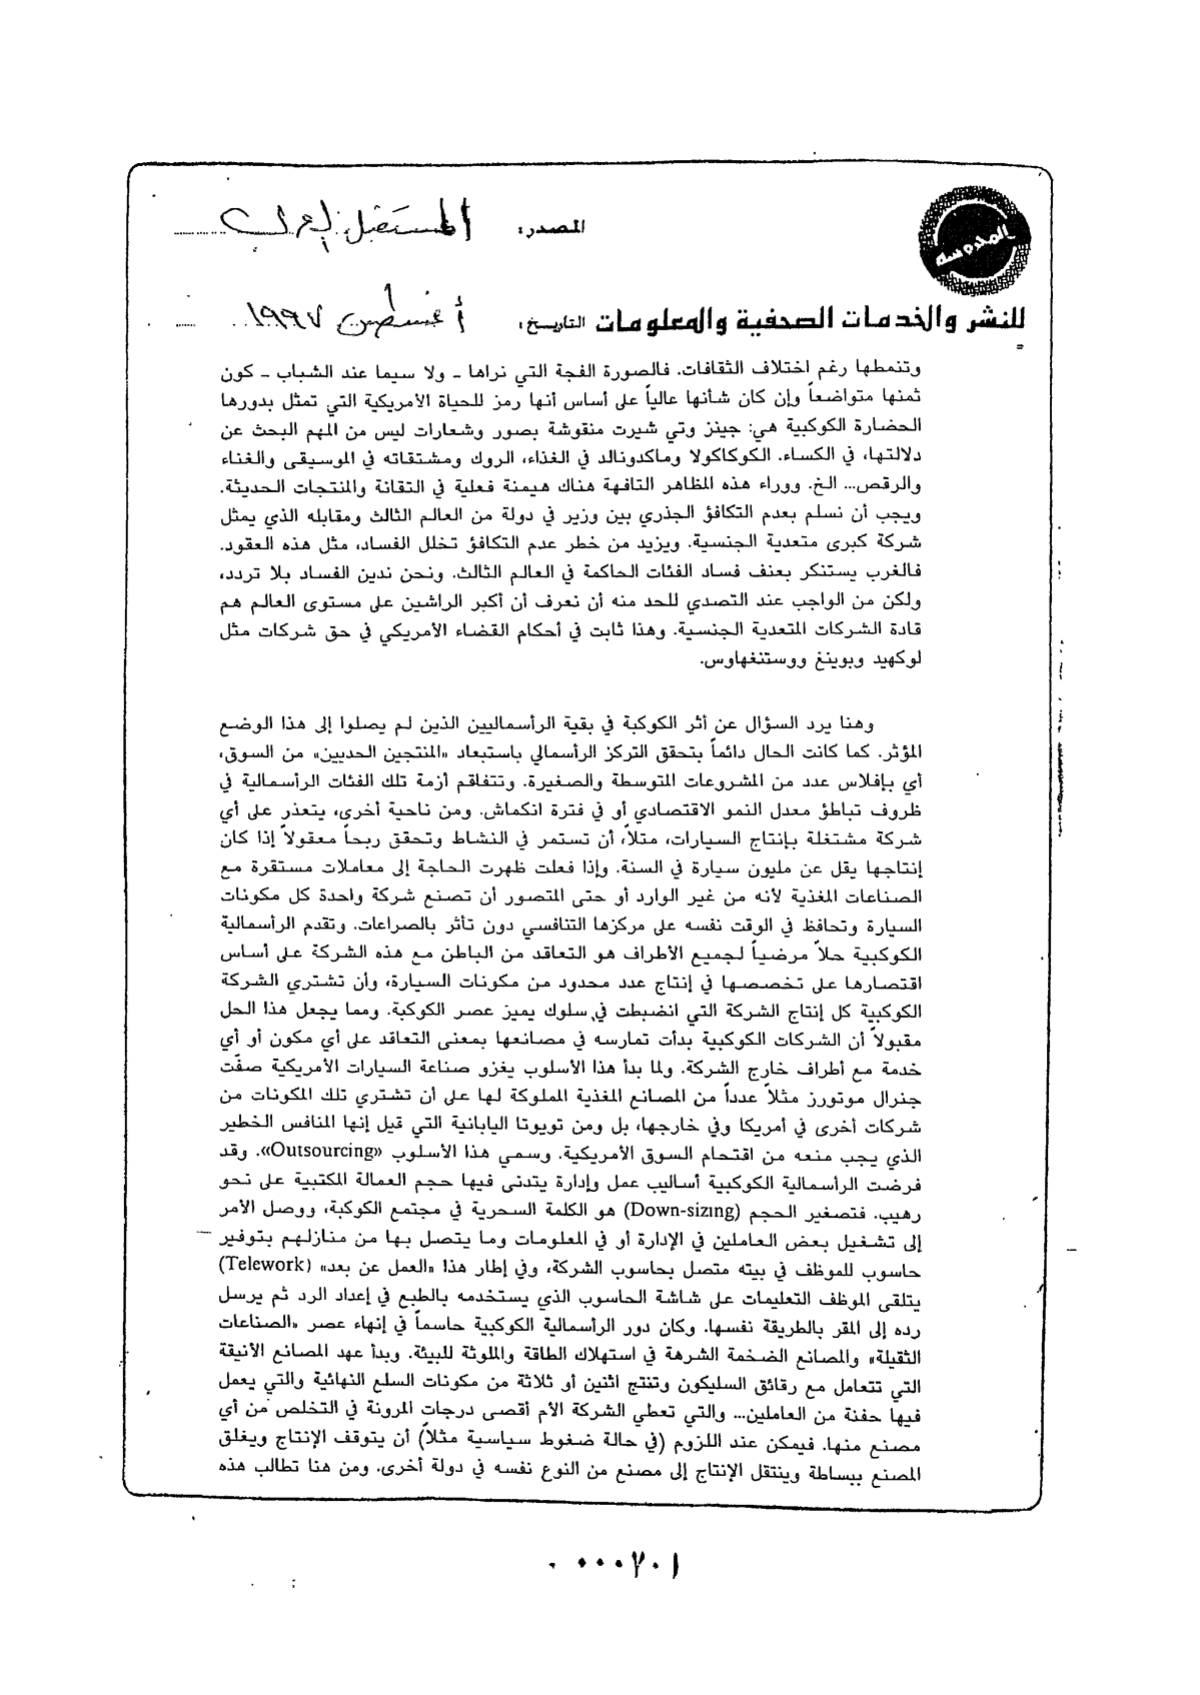 المدروسه
المصدر: المستقبل العربي
للنشر والخدمات الصحفية والمعلومات التاريخ: أغسطس ١٩٩٧
وتنمطها رغم اختلاف الثقافات. فالصورة الفجة التي نراها ـ ولا سيما عند الشباب ـ كون
ثمنها متواضعاً وإن كان شأنها عالياً على أساس أنها رمز للحياة الأمريكية التي تمثل بدورها
الحضارة الكوكبية هي: جينز وتي شيرت منقوشة بصور وشعارات ليس من المهم البحث عن
دلالتها، في الكساء. الكوكاكولا وماكدونالد في الغذاء، الروك ومشتقاته في الموسيقى والغناء
والرقص... الخ. ووراء هذه المظاهر التافهة هناك هيمنة فعلية في التقانة والمنتجات الحديثة.
ويجب أن نسلم بعدم التكافؤ الجذري بين وزير في دولة من العالم الثالث ومقابله الذي يمثل
شركة كبرى متعدية الجنسية. ويزيد من خطر عدم التكافؤ تخلل الفساد، مثل هذه العقود.
فالغرب يستنكر بعنف فساد الفئات الحاكمة في العالم الثالث. ونحن ندين الفساد بلا تردد،
ولكن من الواجب عند التصدي للحد منه أن نعرف أن أكبر الراشين على مستوى العالم هم
قادة الشركات المتعدية الجنسية. وهذا ثابت في أحكام القضاء الأمريكي في حق شركات مثل
لوكهيد وبوينغ ووستنغهاوس.
وهنا يرد السؤال عن أثر الكوكبة في بقية الرأسماليين الذين لم يصلوا إلى هذا الوضع
المؤثر. كما كانت الحال دائماً بتحقق التركز الرأسمالي باستبعاد «المنتجين الحديين» من السوق،
أي بإفلاس عدد من المشروعات المتوسطة والصغيرة. وتتفاقم أزمة تلك الفئات الرأسمالية في
ظروف تباطؤ معدل النمو الاقتصادي أو في فترة انكماش. ومن ناحية أخرى، يتعذر على أي
شركة مشتغلة بإنتاج السيارات، مثلاً، أن تستمر في النشاط وتحقق ربحاً معقولاً إذا كان
إنتاجها يقل عن مليون سيارة في السنة. وإذا فعلت ظهرت الحاجة إلى معاملات مستقرة مع
الصناعات المغذية لأنه من غير الوارد أو حتى المتصور أن تصنع شركة واحدة كل مكونات
السيارة وتحافظ في الوقت نفسه على مركزها التنافسي دون تأثر بالصراعات. وتقدم الرأسمالية
الكوكبية حلاً مرضياً لجميع الأطراف هو التعاقد من الباطن مع هذه الشركة على أساس
اقتصارها على تخصصها في إنتاج عدد محدود من مكونات السيارة، وأن تشتري الشركة
الكوكبية كل إنتاج الشركة التي انضبطت في سلوك يميز عصر الكوكبة. ومما يجعل هذا الحل
مقبولاً أن الشركات الكوكبية بدأت تمارسه في مصانعها بمعنى التعاقد على أي مكون أو أي
خدمة مع أطراف خارج الشركة. ولما بدأ هذا الأسلوب يغزو صناعة السيارات الأمريكية صفّت
جنرال موتورز مثلاً عدداً من المصانع المغذية المملوكة لها على أن تشتري تلك المكونات من
شركات أخرى في أمريكا وفي خارجها، بل ومن تويوتا اليابانية التي قيل إنها المنافس الخطير
الذي يجب منعه من اقتحام السوق الأمريكية. وسمي هذا الأسلوب «Outsourcing». وقد
فرضت الرأسمالية الكوكبية أساليب عمل وإدارة يتدنى فيها حجم العمالة المكتبية على نحو
رهيب. فتصغير الحجم (Down-sizing) هو الكلمة السحرية في مجتمع الكوكبة، ووصل الأمر
إلى تشغيل بعض العاملين في الإدارة أو في المعلومات وما يتصل بها من منازلهم بتوفير
حاسوب للموظف في بيته متصل بحاسوب الشركة، وفي إطار هذا «العمل عن بعد» (Telework)
يتلقى الموظف التعليمات على شاشة الحاسوب الذي يستخدمه بالطبع في إعداد الرد ثم يرسل
رده إلى المقر بالطريقة نفسها. وكان دور الرأسمالية الكوكبية حاسماً في إنهاء عصر «الصناعات
الثقيلة» والمصانع الضخمة الشرهة في استهلاك الطاقة والملوثة للبيئة. وبدأ عهد المصانع الأنيقة
التي تتعامل مع رقائق السليكون وتنتج اثنين أو ثلاثة من مكونات السلع النهائية والتي يعمل
فيها حفنة من العاملين... والتي تعطي الشركة الأم أقصى درجات المرونة في التخلص من أي
مصنع منها. فيمكن عند اللزوم (في حالة ضغوط سياسية مثلاً) أن يتوقف الإنتاج ويغلق
المصنع ببساطة وينتقل الإنتاج إلى مصنع من النوع نفسه في دولة أخرى. ومن هنا تطالب هذه